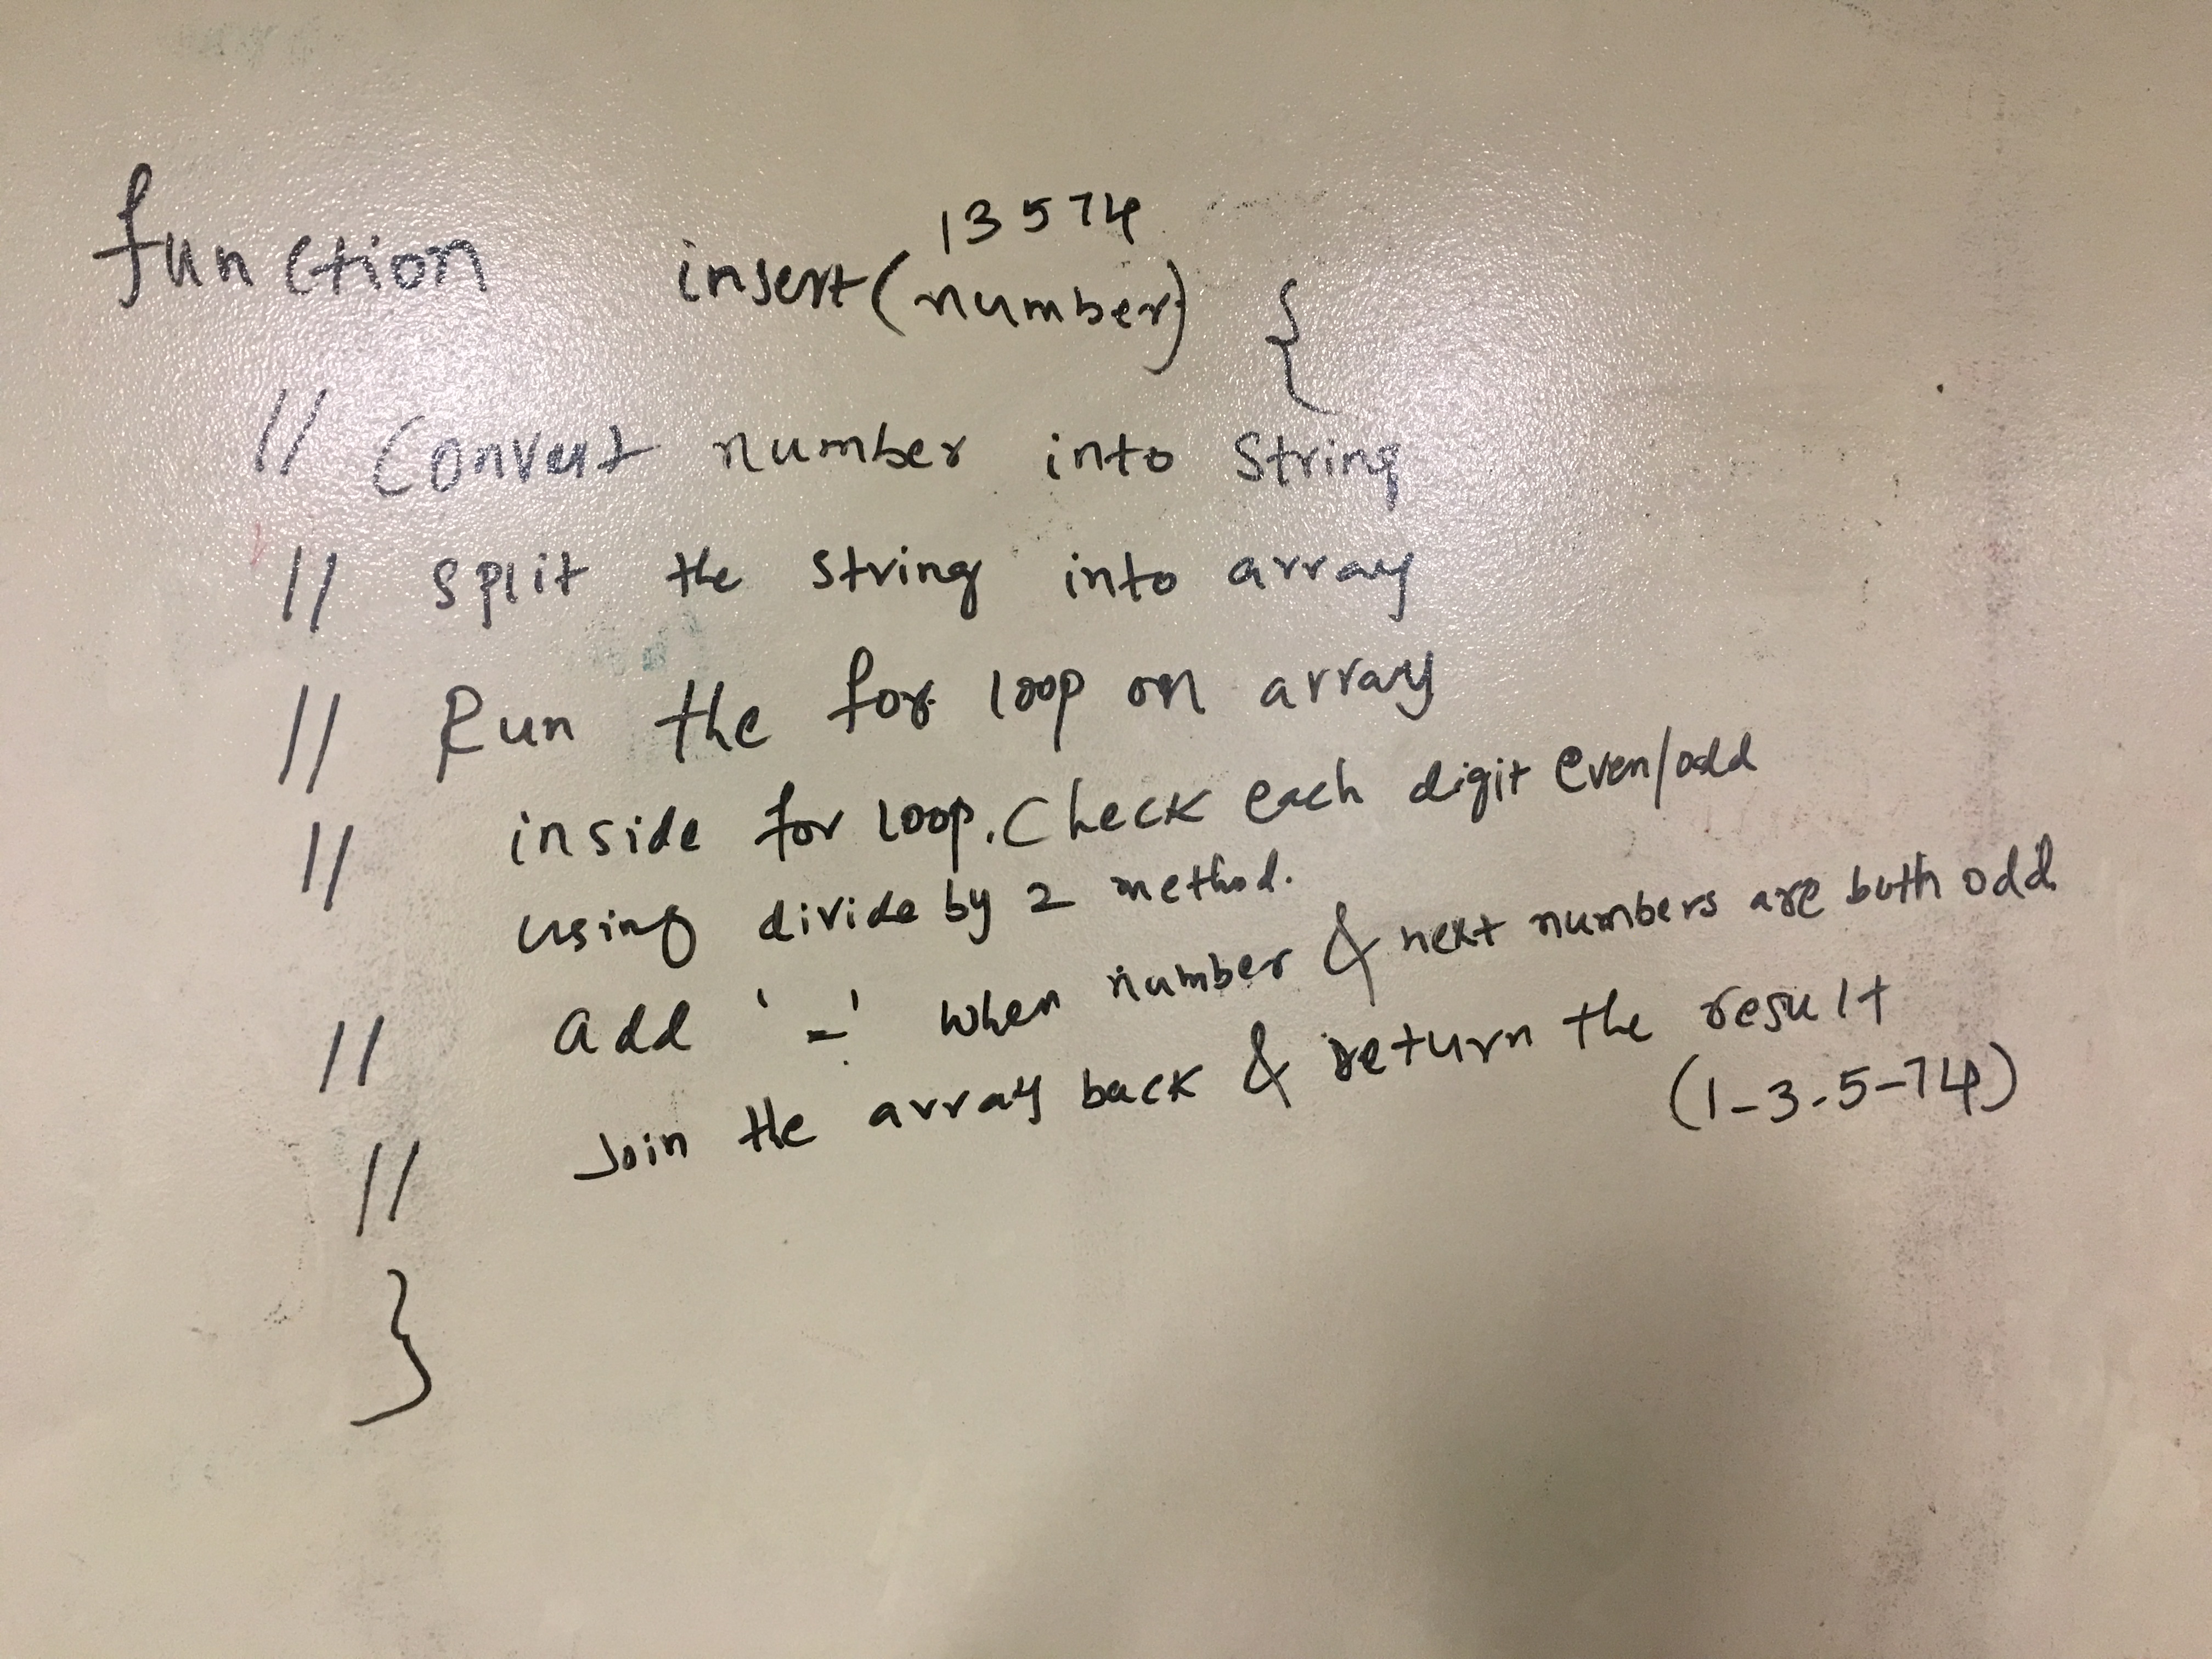 13574
function insert(number) {
// Convert number into String
// split the string into array
// Run the for loop on array
// inside for loop. Check each digit even/odd
using divide by 2 method.
// add '-' when number & next numbers are both odd
// Join the array back & return the result
(1-3-5-74)
}